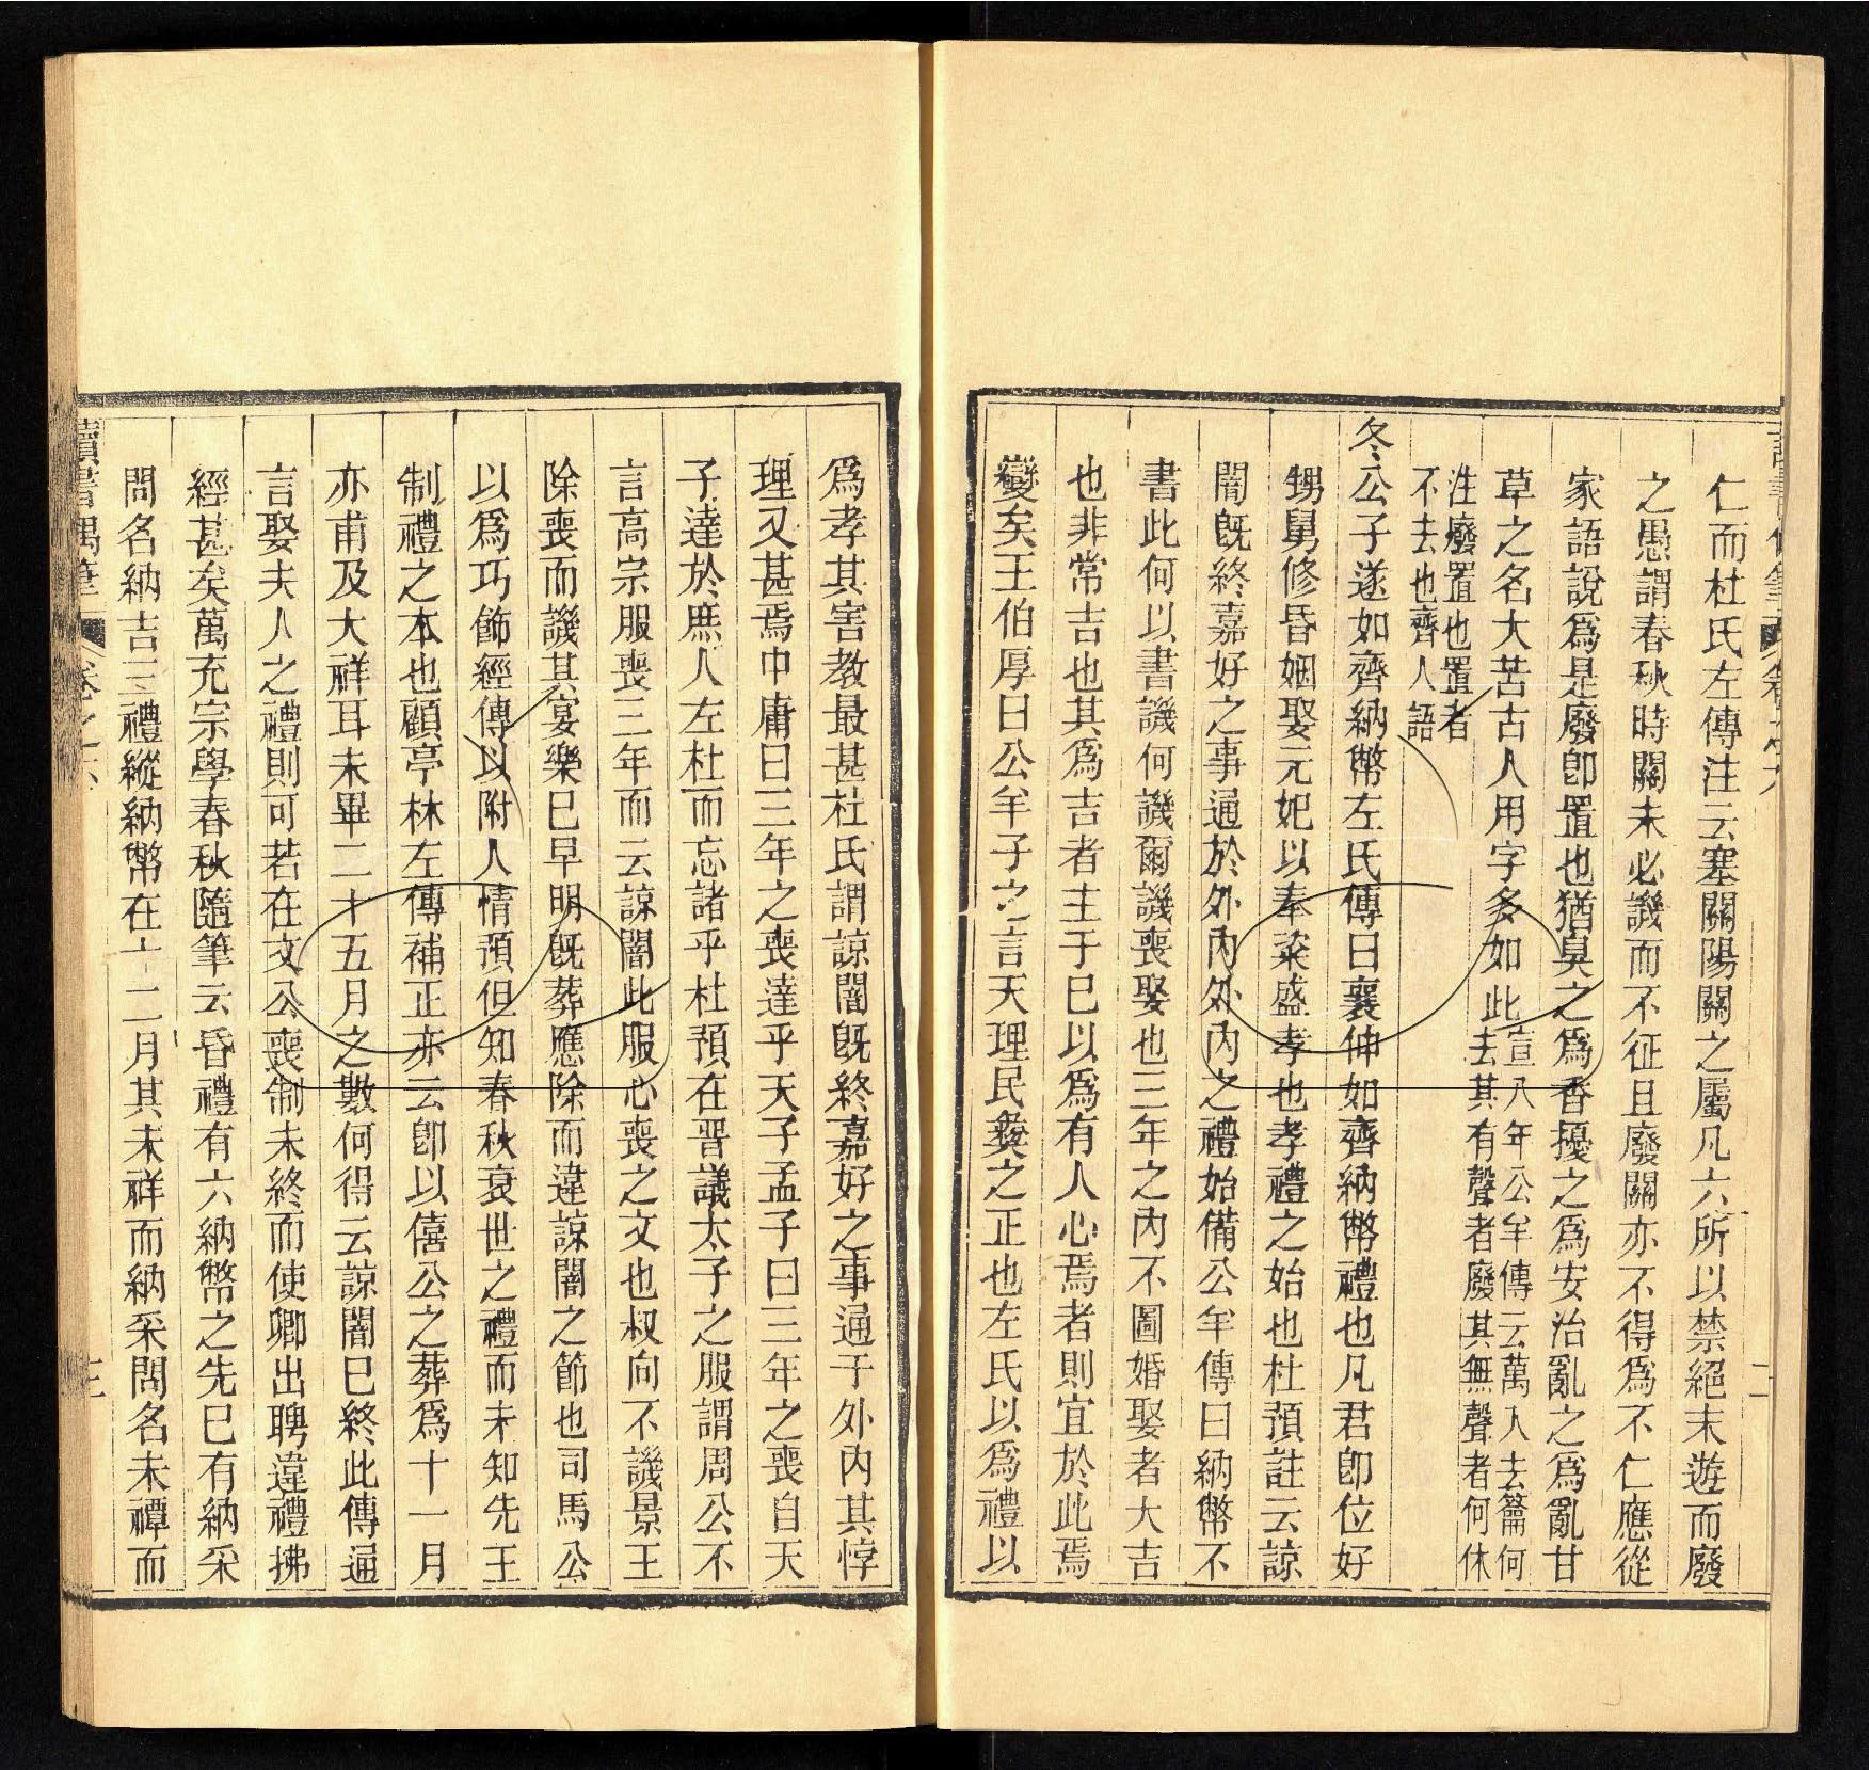 仁而杜氏左傳注云塞關陽關之屬凡六所以禁絕末遊而廢
之愚謂春秋時關未必譏而不征且廢關亦不得爲不仁應從
家語說爲是廢卽置也猶臭之爲香擾之爲安治亂之爲亂甘
草之名大苦古人用字多如此宣八年公羊傳云萬入去籥何
去其有聲者廢其無聲者何休
注廢置也置者
不去也齊人語
冬公子遂如齊納幣左氏傳曰襄仲如齊納幣禮也凡君卽位好
甥舅修昏姻娶元妃以奉粢盛孝也孝禮之始也杜預註云諒
闇旣終嘉好之事通於外內外內之禮始備公羊傳曰納幣不
書此何以書譏何譏爾譏喪娶也三年之內不圖婚娶者大吉
也非常吉也其爲吉者主于已以爲有人心焉者則宜於此焉
變矣王伯厚曰公羊子之言天理民彜之正也左氏以爲禮以
爲孝其害教最甚杜氏謂諒闇旣終嘉好之事通于外內其悖
理又甚焉中庸曰三年之喪達乎天子孟子曰三年之喪自天
子達於庶人左杜而忘諸乎杜預在晋議太子之服謂周公不
言高宗服喪三年而云諒闇此服心喪之文也叔向不譏景王
除喪而譏其宴樂已早明旣葬應除而違諒闇之節也司馬公
以爲巧飾經傳以附人情預但知春秋衰世之禮而未知先王
制禮之本也顧亭林左傳補正亦云卽以僖公之葬爲十一月
亦甫及大祥耳未畢二十五月之數何得云諒闇已終此傳通
言娶夫人之禮則可若在文公喪制未終而使卿出聘違禮拂
經甚矣萬充宗學春秋隨筆云昏禮有六納幣之先已有納采
問名納吉三禮縱納幣在十二月其未祥而納采問名未禫而
讀書偶筆
卷之六
三